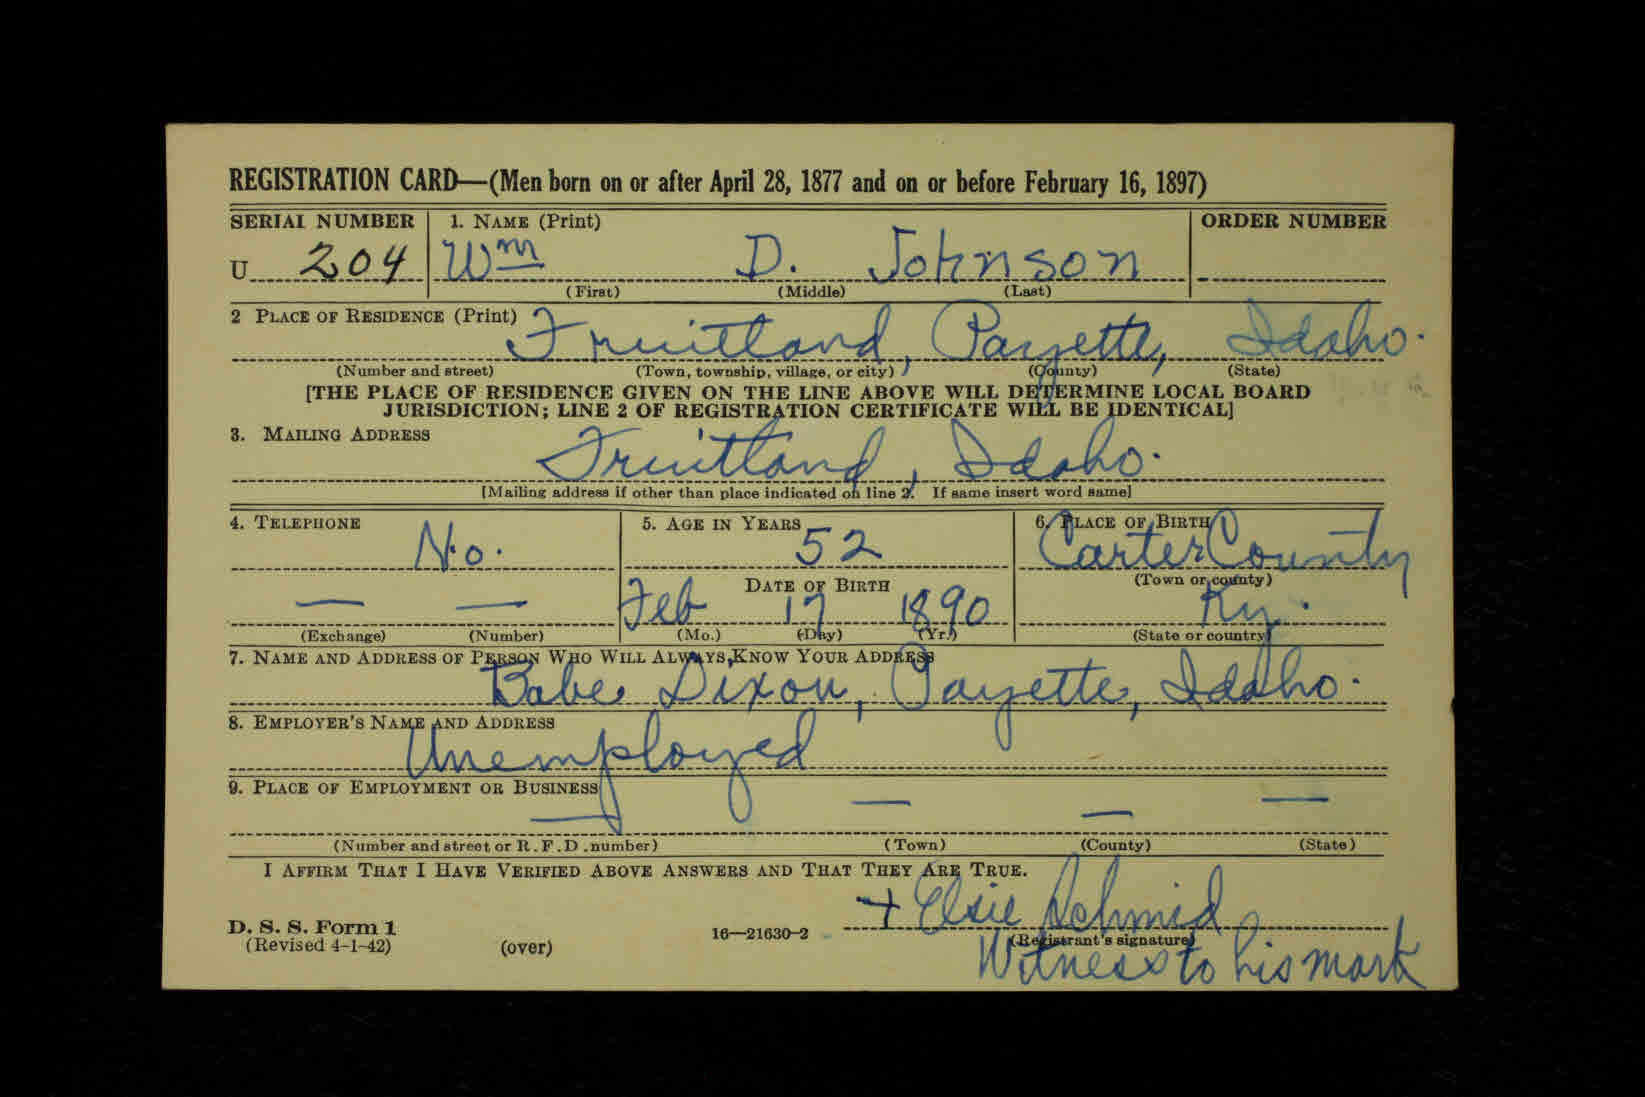 REGISTRATION CARD—(Men born on or after April 28, 1877 and on or before February 16, 1897)
SERIAL NUMBER 1. NAME (Print) ORDER NUMBER
U 204 Wm D. Johnson
(First) (Middle) (Last)
2 PLACE OF RESIDENCE (Print)
Fruitland, Payette, Idaho.
(Number and street) (Town, township, village, or city) (County) (State)
[THE PLACE OF RESIDENCE GIVEN ON THE LINE ABOVE WILL DETERMINE LOCAL BOARD
JURISDICTION; LINE 2 OF REGISTRATION CERTIFICATE WILL BE IDENTICAL]
3. MAILING ADDRESS
Fruitland, Idaho.
[Mailing address if other than place indicated on line 2. If same insert word same]
4. TELEPHONE 5. AGE IN YEARS 6. PLACE OF BIRTH
No. 52 Carter County
DATE OF BIRTH (Town or county)
— — Feb 17 1890 Ky.
(Exchange) (Number) (Mo.) (Day) (Yr.) (State or country)
7. NAME AND ADDRESS OF PERSON WHO WILL ALWAYS KNOW YOUR ADDRESS
Babe Dixon, Payette, Idaho.
8. EMPLOYER'S NAME AND ADDRESS
Unemployed
9. PLACE OF EMPLOYMENT OR BUSINESS
— — — —
(Number and street or R.F.D. number) (Town) (County) (State)
I AFFIRM THAT I HAVE VERIFIED ABOVE ANSWERS AND THAT THEY ARE TRUE.
+ Elsie Schmid
D. S. S. Form 1
(Revised 4-1-42) (over) 16—21630-2 (Registrant's signature)
Witness to his mark